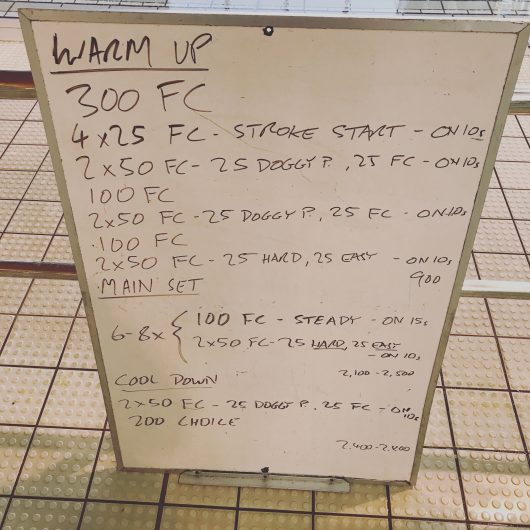 WARM UP
300 FC
4x25 FC - STROKE START - ON 10s
2x50 FC - 25 DOGGY P., 25 FC - ON 10s
100 FC
2x50 FC - 25 DOGGY P., 25 FC - ON 10s
100 FC
2x50 FC - 25 HARD, 25 EASY - ON 10s
900
MAIN SET
6-8x { 100 FC - STEADY - ON 15s
2x50 FC - 25 HARD, 25 EASY
- ON 10s
2,100 - 2,500
COOL DOWN
2x50 FC - 25 DOGGY P., 25 FC - ON 10s
200 CHOICE
2,400 - 2,800